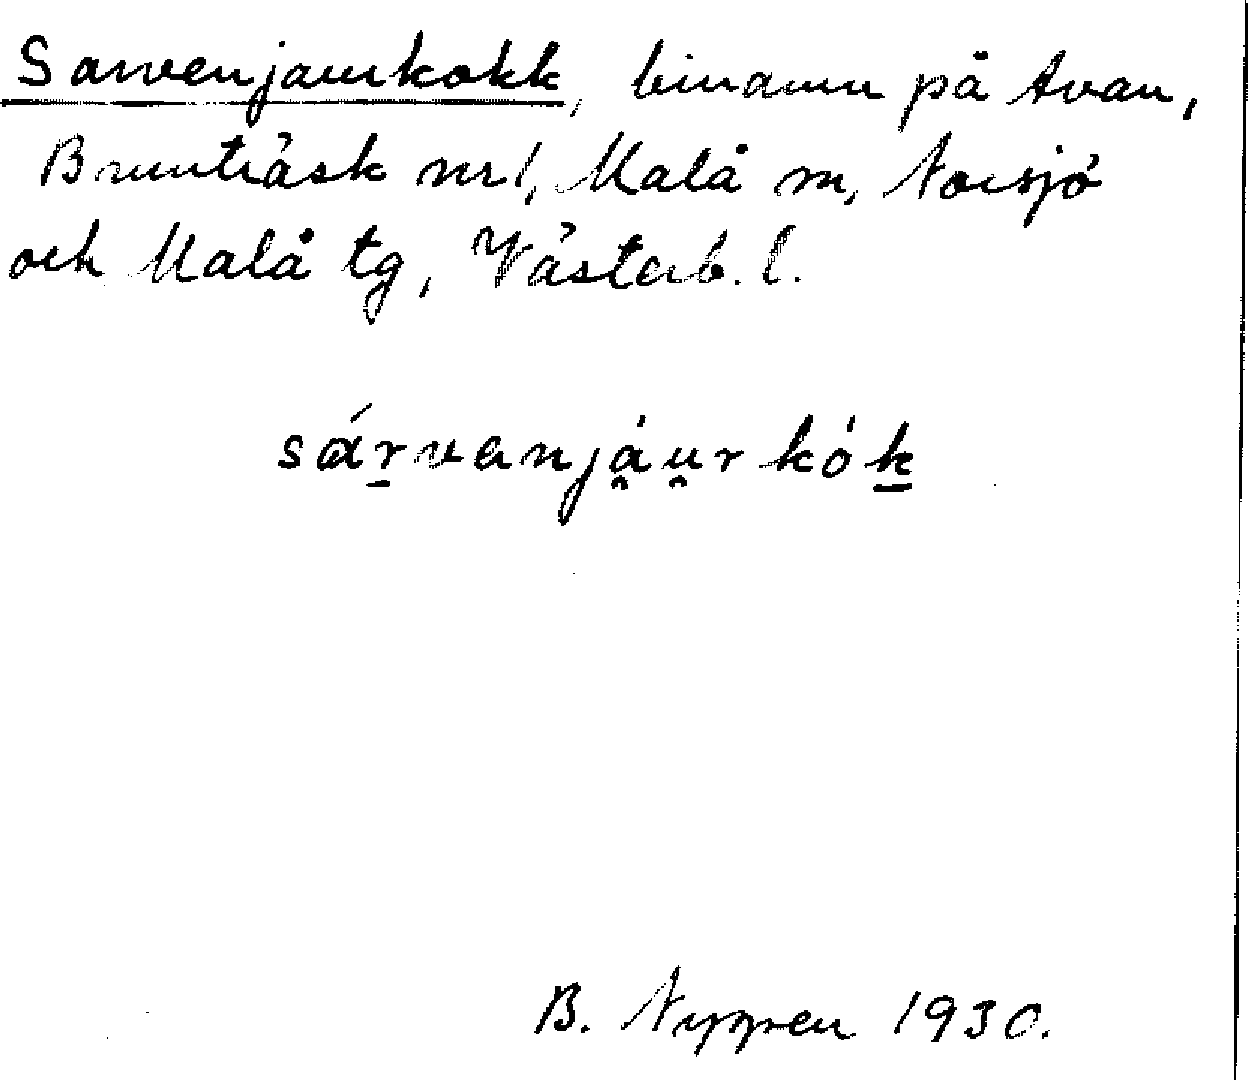 Sarvenjaurkokk, binamn på Avan,
Brunträsk nr 1, Malå sn, Norsjö
och Malå tg, Västerb. l.
sárvanjáurkók
B. Nygren 1930.